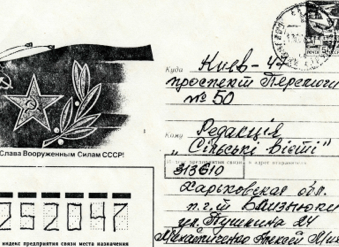 Куда Киев-47
проспект Перемоги
№ 50
Кому Редакція
"Сільські вісті"
313610
Харьковская обл.
п.г.т Близнюки
ул. Пушкина 24
Слава Вооруженным Силам СССР!
252047
индекс предприятия связи места назначения